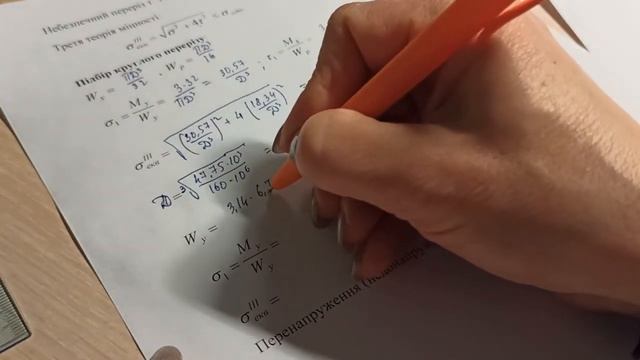 Небезпечний переріз
Третя теорія міцності
σ^III_екв = √(σ² + 4τ²)
Підбір круглого перерізу
W_y = πD³/32 , W_ρ = πD³/16
σ₁ = M_y/W_y = 3·32/πD³ = 30,57/D³ ; τ₁ = M_x/W_ρ =
σ^III_екв = √((30,57/D³)² + 4(18,34/D³)²) =
D = ³√(47,75·10³/160·10⁶) =
W_y = 3,14·6,7
σ₁ = M_y/W_y =
σ^III_екв =
Перенапруження